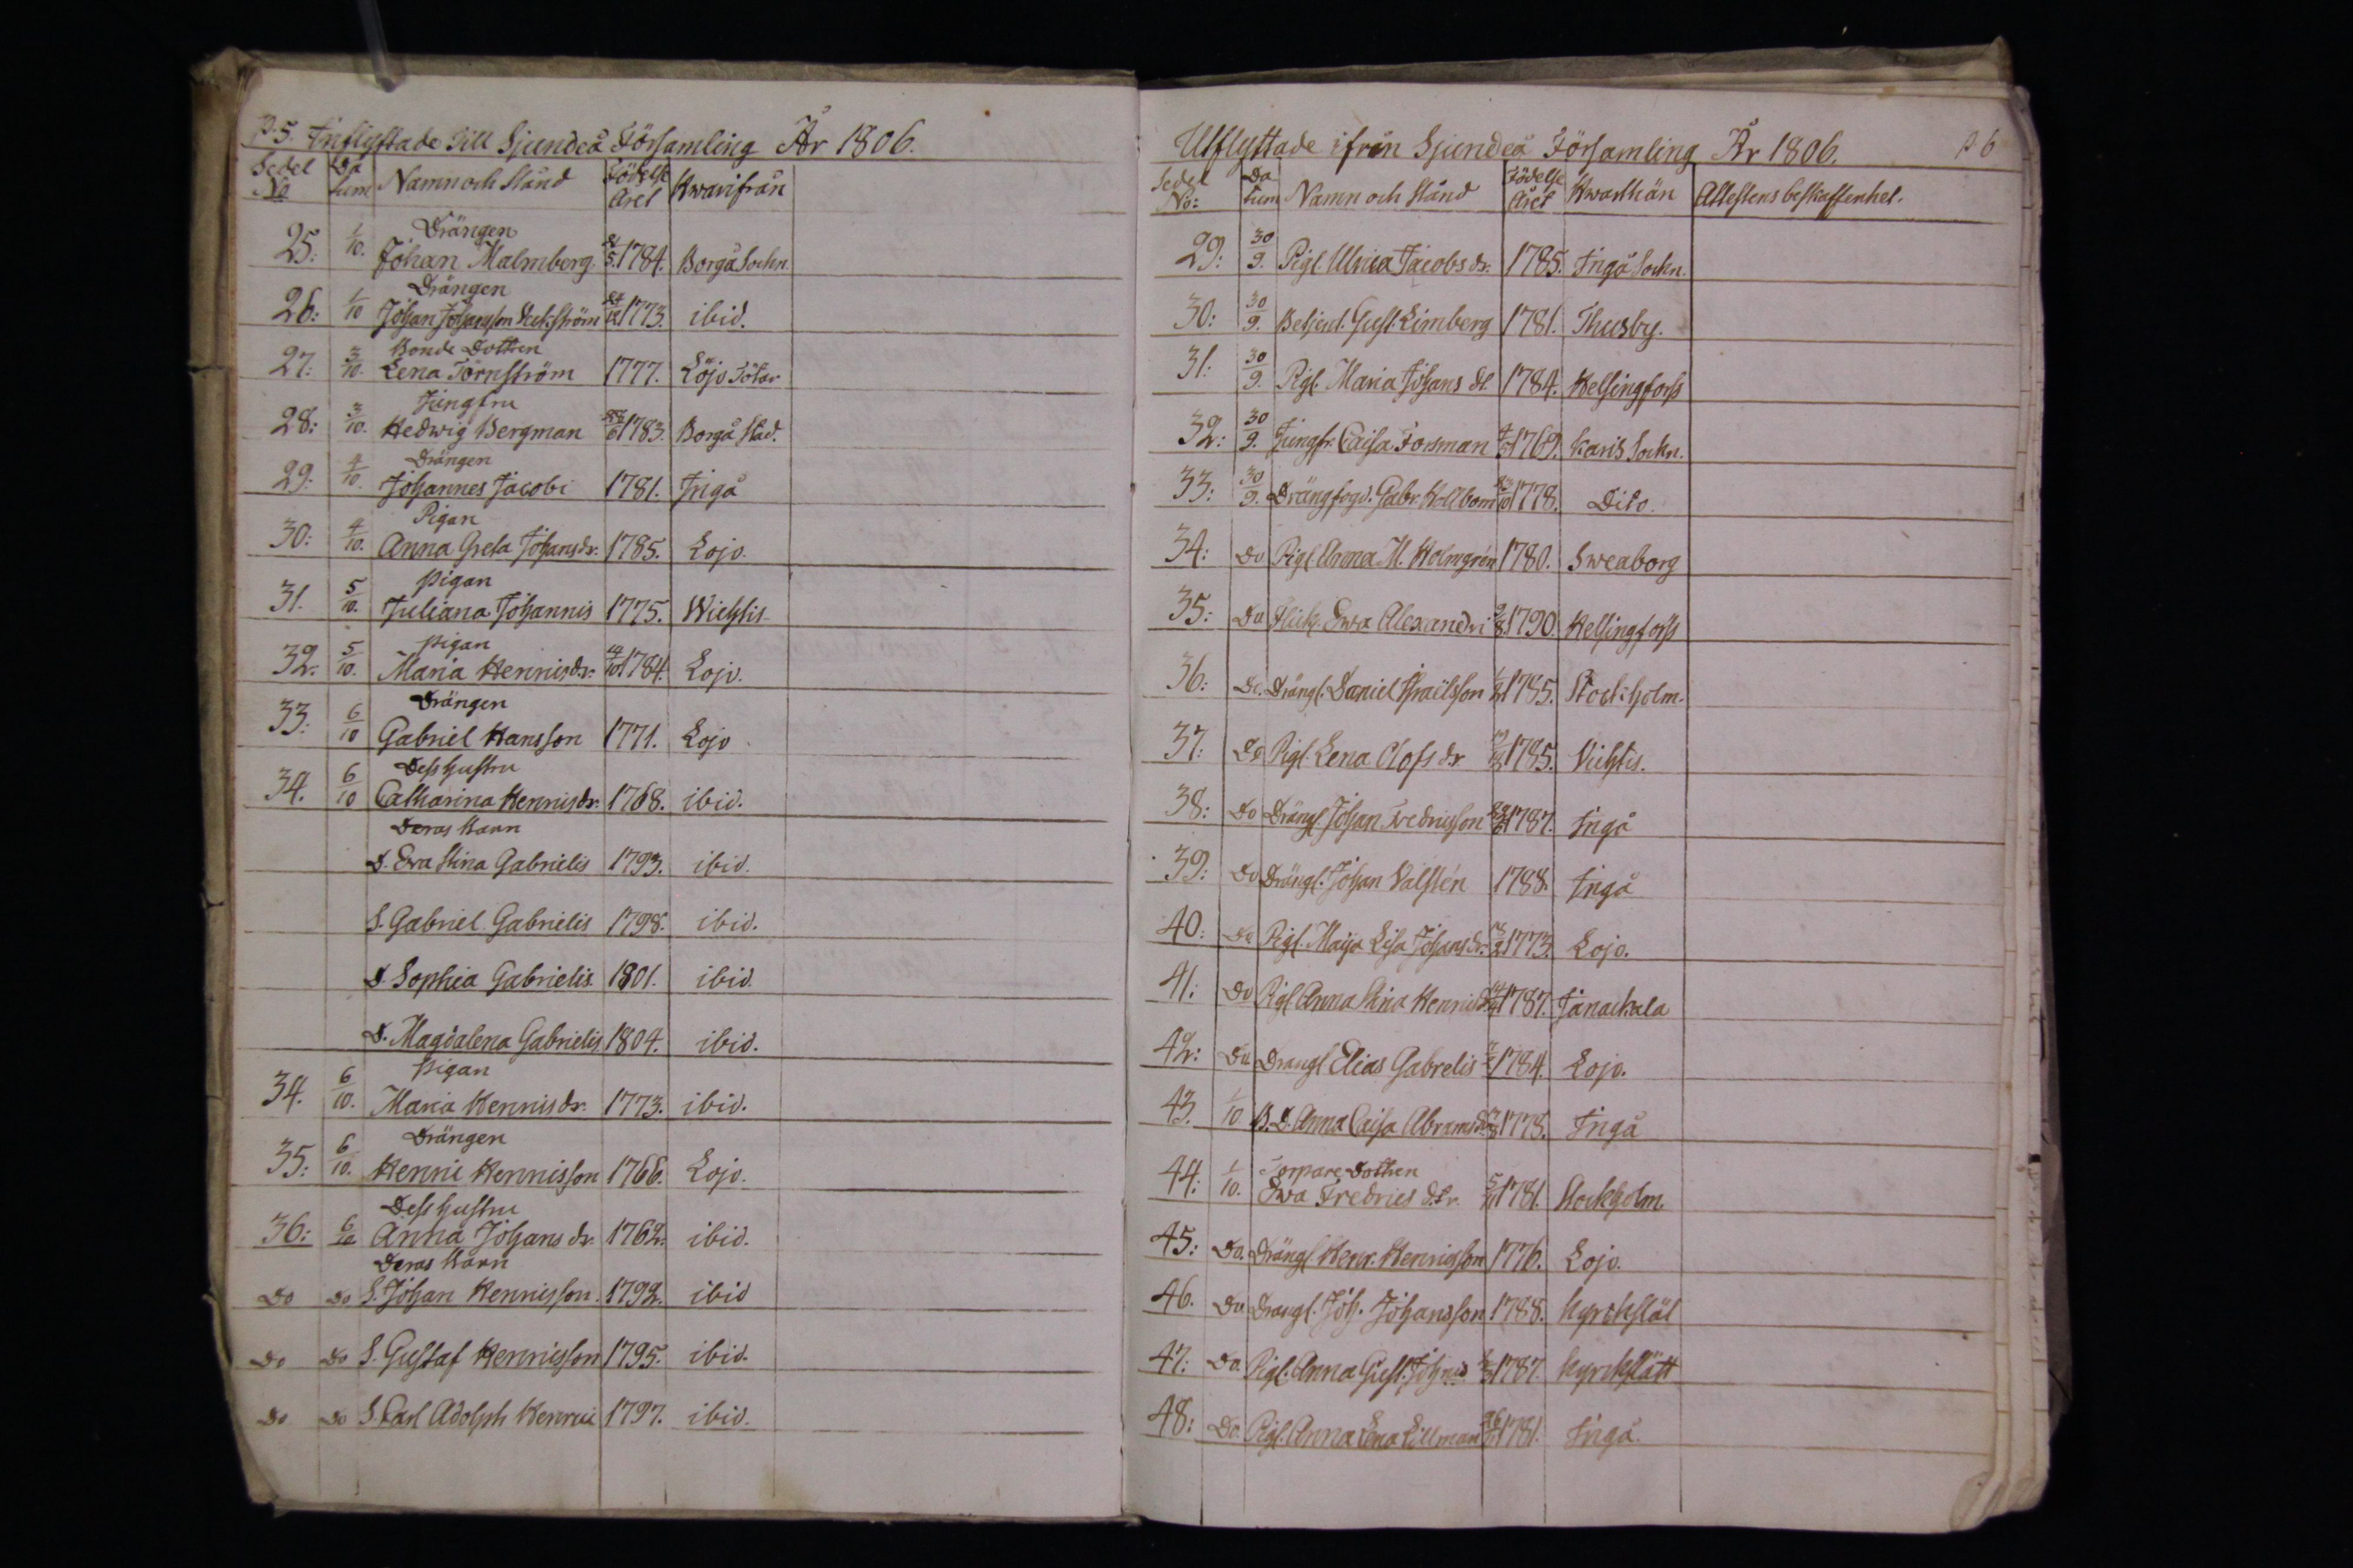 p. 5. Inflyttade till Sjundeå Församling År 1806.
Sedel No Datum Namn och Stånd Födelse Året Hwarifrån
Drängen
25: 1/10. Johan Malmberg 1784. Borgå Sockn.
Drängen
26: 1/10 Johan Johansson 1773. ibid.
Bonde Dottren
27: 3/10. Lena Törnström 1777. Lojo
Jungfru
28: 3/10. Hedwig Bergman 1783. Borgå Stad.
Drängen
29: 4/10. Johannes Jacobi 1781. Ingå
Pigan
30: 4/10. Anna Greta Johansdr. 1785. Lojo.
Pigan
31. 5/10. Juliana Johannis 1775. Wichtis
Pigan
32. 5/10. Maria Henrisdr. 1784. Lojo.
Drängen
33: 6/10 Gabriel Hansson 1771. Lojo
Dess hustru
34. 6/10 Catharina Henrisdr. 1768. ibid.
Deras Barn
D. Ewa Stina Gabrielis 1793. ibid.
S. Gabriel Gabrielis 1798. ibid.
D. Sophia Gabrielis 1801. ibid.
D. Magdalena Gabrielis 1804. ibid.
Pigan
34. 6/10. Maria Henrisdr. 1773. ibid.
Drängen
35: 6/10. Henric Henrisson 1766. Lojo.
Dess hustru
36: 6/10 Anna Johansdr. 1762. ibid.
Deras Barn
Do Do S. Johan Henrisson. 1792. ibid
Do Do S. Gustaf Henrisson 1795. ibid.
Do Do S. Carl Adolph Henrici 1797. ibid.
Utflyttade ifrån Sjundeå Församling År 1806. p 6
Sedel No: Datum Namn och Stånd Födelse Året Hwarthän Attestens beskaffenhet.
29: 30/9. Pig. Ulrica Jacobsdr. 1785. Ingå Sockn.
30: 30/9. Betjent. Gust. Limberg 1781. Thusby.
31: 30/9. Pig. Maria Johans dr. 1784. Helsingfors
32: 30/9. Jungfr. Caisa Forsman 1769. Karis Sockn.
33: 30/9. Drängfogd. Gabr. Hollbom 1778. Dito.
34: Do Pig. Anna M. Holmgren 1780. Sweaborg
35: Do Flick. Ewa Alexandri 1790. Helsingfors
36: Do. Dräng. Daniel Israëlsson 1785. Stockholm.
37: Do Pig. Lena Olofs dr. 1785. Vichtis.
38: Do Dräng. Johan Fredricsson 1787. Ingå
39: Do Dräng. Johan Valstén 1788. Ingå
40: Do Pig. Maija Lisa Johansdr. 1773. Lojo.
41: Do Pig. Anna Stina Henricsdr. 1787. Janackala
42: Do Dräng Elias Gabrelis 1784. Lojo.
43. 1/10 B.D. Anna Caisa Abramsdr. 1775. Ingå
Torpare Dottren
44: 1/10. Ewa Fredrics dtr. 1781. Stockholm.
45: Do. Dräng Henr. Henricsson 1776. Lojo.
46. Do Dräng. Joh. Johansson 1788. Kyrckslät
47: Do. Pig. Anna Gust. Johansd. 1787. Kyrckslätt
48: Do. Pig. Anna Lena Lillman 1781. Ingå.